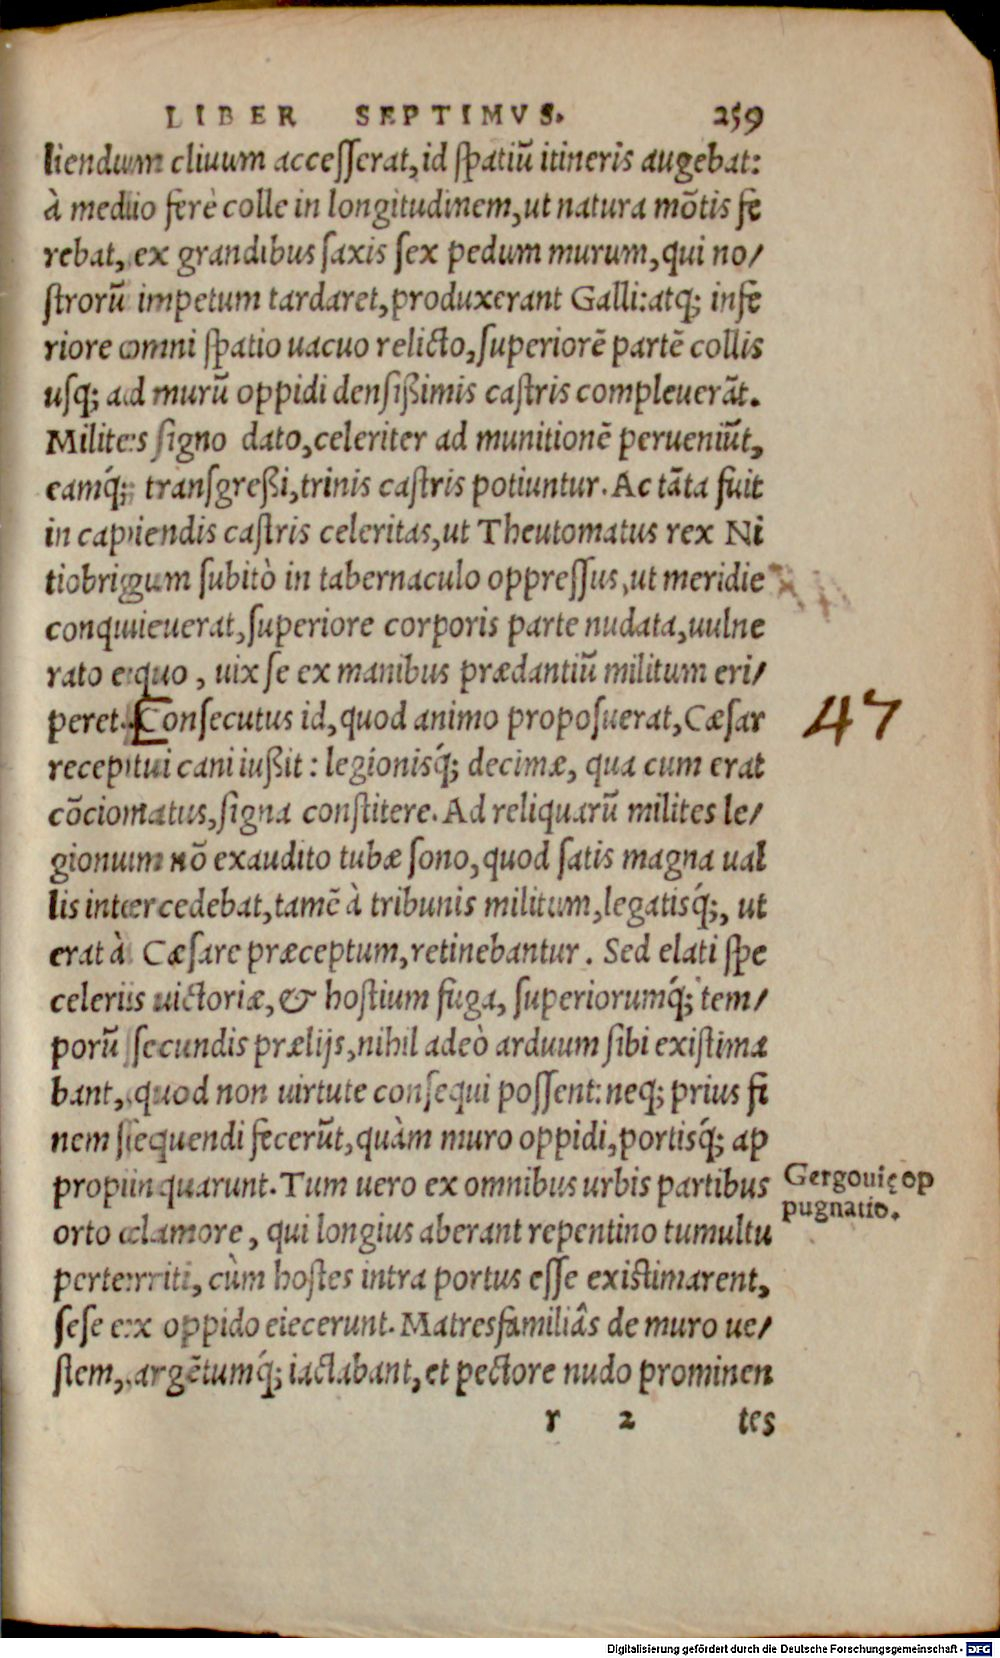 LIBER SEPTIMVS. 259
liendum cliuum accesserat, id spatiū itineris augebat:
à medio ferè colle in longitudinem, ut natura mōtis fe
rebat, ex grandibus saxis sex pedum murum, qui no/
strorū impetum tardaret, produxerant Galli: atq; infe
riore omni spatio uacuo relicto, superiorē partē collis
usq; ad murū oppidi densißimis castris compleuerāt.
Milites signo dato, celeriter ad munitionē perueniūt,
eamq́; transgreßi, trinis castris potiuntur. Ac tāta fuit
in capiendis castris celeritas, ut Theutomatus rex Ni
tiobrigum subitò in tabernaculo oppressus, ut meridie
conquieuerat, superiore corporis parte nudata, uulne
rato equo, uix se ex manibus prædantiū militum eri/
peret. Consecutus id, quod animo proposuerat, Cæsar
receptui cani iußit: legionisq́; decimæ, qua cum erat
cōcionatus, signa constitere. Ad reliquarū milites le/
gionum nō exaudito tubæ sono, quod satis magna ual
lis intercedebat, tamē à tribunis militum, legatisq́;, ut
erat à Cæsare præceptum, retinebantur. Sed elati spe
celeris uictoriæ, & hostium fuga, superiorumq́; tem/
porū secundis prælijs, nihil adeò arduum sibi existima
bant, quod non uirtute consequi possent: neq; prius fi
nem sequendi fecerūt, quàm muro oppidi, portisq́; ap
propinquarunt. Tum uero ex omnibus urbis partibus
orto clamore, qui longius aberant repentino tumultu
perterriti, cùm hostes intra portus esse existimarent,
sese ex oppido eiecerunt. Matresfamiliâs de muro ue/
stem, argētumq́; iactabant, et pectore nudo prominen
r 2 tes
47
Gergouię op
pugnatio.
Digitalisierung gefördert durch die Deutsche Forschungsgemeinschaft - DFG